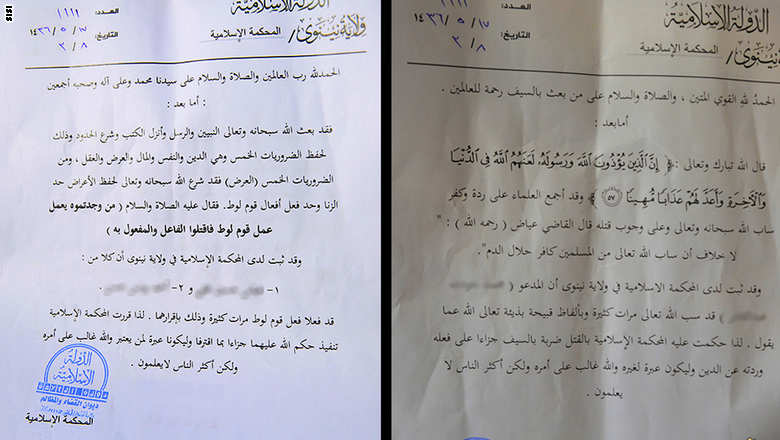 العدد: ١١١١
الدولة الاسلامية
ولاية نينوى/ المحكمة الإسلامية
التاريخ: ١٧ / ٥ / ١٤٣٦
٣/٨
الحمدلله رب العالمين والصلاة والسلام على سيدنا محمد وعلى آله وصحبه أجمعين
أما بعد :
فقد بعث الله سبحانه وتعالى النبيين والرسل وأنزل الكتب وشرع الحدود وذلك
لحفظ الضروريات الخمس وهي الدين والنفس والمال والعرض والعقل ، ومن
الضروريات الخمس (العرض) فقد شرع الله سبحانه وتعالى لحفظ الأعراض حد
الزنا وحد فعل أفعال قوم لوط. فقال عليه الصلاة والسلام ( من وجدتموه يعمل
عمل قوم لوط فاقتلوا الفاعل والمفعول به )
وقد ثبت لدى المحكمة الإسلامية في ولاية نينوى أن كلا من :
١- و ٢- .
قد فعلا فعل قوم لوط مرات كثيرة وذلك بإقرارهما . لذا قررت المحكمة الإسلامية
تنفيذ حكم الله عليهما جزاءا بما اقترفا وليكونا عبرة لمن يعتبر والله غالب على أمره
ولكن أكثر الناس لايعلمون .
الدولة
الاسلامية
ديوان القضاء والمظالم
المحكمة الإسلامية
العدد: ١١١١
الدولة الاسلامية
نينوى/ المحكمة الإسلامية
التاريخ: ١٧ / ٥ / ١٤٣٦
٣/٨
الحمدُ للهِ القوي المتين ، والصلاة والسلام على من بعث بالسيف رحمة للعالمين .
أمابعد :
قال الله تبارك وتعالى :﴿ إِنَّ الَّذِينَ يُؤْذُونَ اللَّهَ وَرَسُولَهُ لَعَنَهُمُ اللَّهُ فِي الدُّنْيَا
وَالْآخِرَةِ وَأَعَدَّ لَهُمْ عَذَابًا مُّهِينًا ٥٧ ﴾ وقد أجمع العلماء على ردة وكفر
ساب الله سبحانه وتعالى وعلى وجوب قتله قال القاضي عياض ( رحمه الله ) : "
لا خلاف أن ساب الله تعالى من المسلمين كافر حلال الدم".
وقد ثبت لدى المحكمة الاسلامية في ولاية نينوى أن المدعو (
) قد سب الله تعالى مرات كثيرة وبألفاظ قبيحة بذيئة تعالى الله عما
يقول . لذا حكمت عليه المحكمة الإسلامية بالقتل ضربة بالسيف جزاءا على فعله
وردته عن الدين وليكون عبرة لغيره والله غالب على أمره ولكن أكثر الناس لا
يعلمون .
ISIS